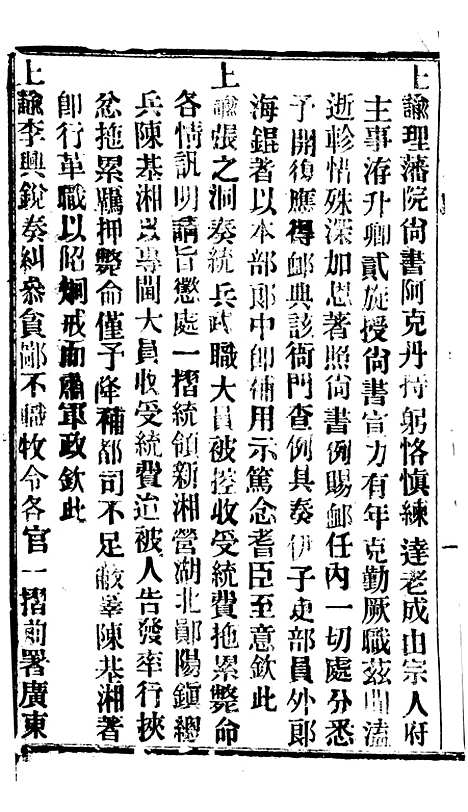 上諭理藩院尚書阿克丹持躬恪慎練達老成由宗人府
主事洊升卿貳旋授尚書宣力有年克勤厥職茲聞溘
逝軫惜殊深加恩著照尚書例賜卹任內一切處分悉
予開復應得卹典該衙門查例具奏伊子吏部員外郎
海錕著以本部郎中即補用示篤念耆臣至意欽此
上諭張之洞奏統兵武職大員被控收受統費拖累斃命
各情訊明請旨懲處一摺統領新湘營湖北鄖陽鎮總
兵陳基湘以專閫大員收受統費迨被人告發率行挾
忿拖累羈押斃命僅予降補都司不足蔽辜陳基湘著
即行革職以昭炯戒而肅軍政欽此
上諭李興銳奏糾參貪鄙不職牧令各官一摺前署廣東
一